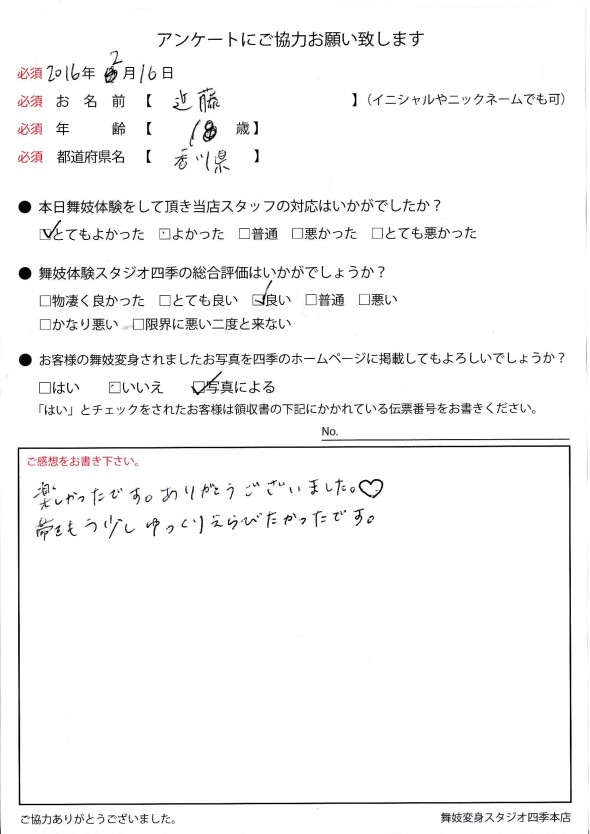 アンケートにご協力お願い致します
必須 2016年 2月16日
必須 お名前 【 近藤 】(イニシャルやニックネームでも可)
必須 年齢 【 18 歳】
必須 都道府県名 【 香川県 】
● 本日舞妓体験をして頂き当店スタッフの対応はいかがでしたか?
☑とてもよかった □よかった □普通 □悪かった □とても悪かった
● 舞妓体験スタジオ四季の総合評価はいかがでしょうか?
□物凄く良かった □とても良い ☑良い □普通 □悪い
□かなり悪い □限界に悪い二度と来ない
● お客様の舞妓変身されましたお写真を四季のホームページに掲載してもよろしいでしょうか?
□はい □いいえ ☑写真による
「はい」とチェックをされたお客様は領収書の下記にかかれている伝票番号をお書きください。
No.
ご感想をお書き下さい。
楽しかったです。ありがとうございました。♡
帯をもう少しゆっくりえらびたかったです。
ご協力ありがとうございました。 舞妓変身スタジオ四季本店